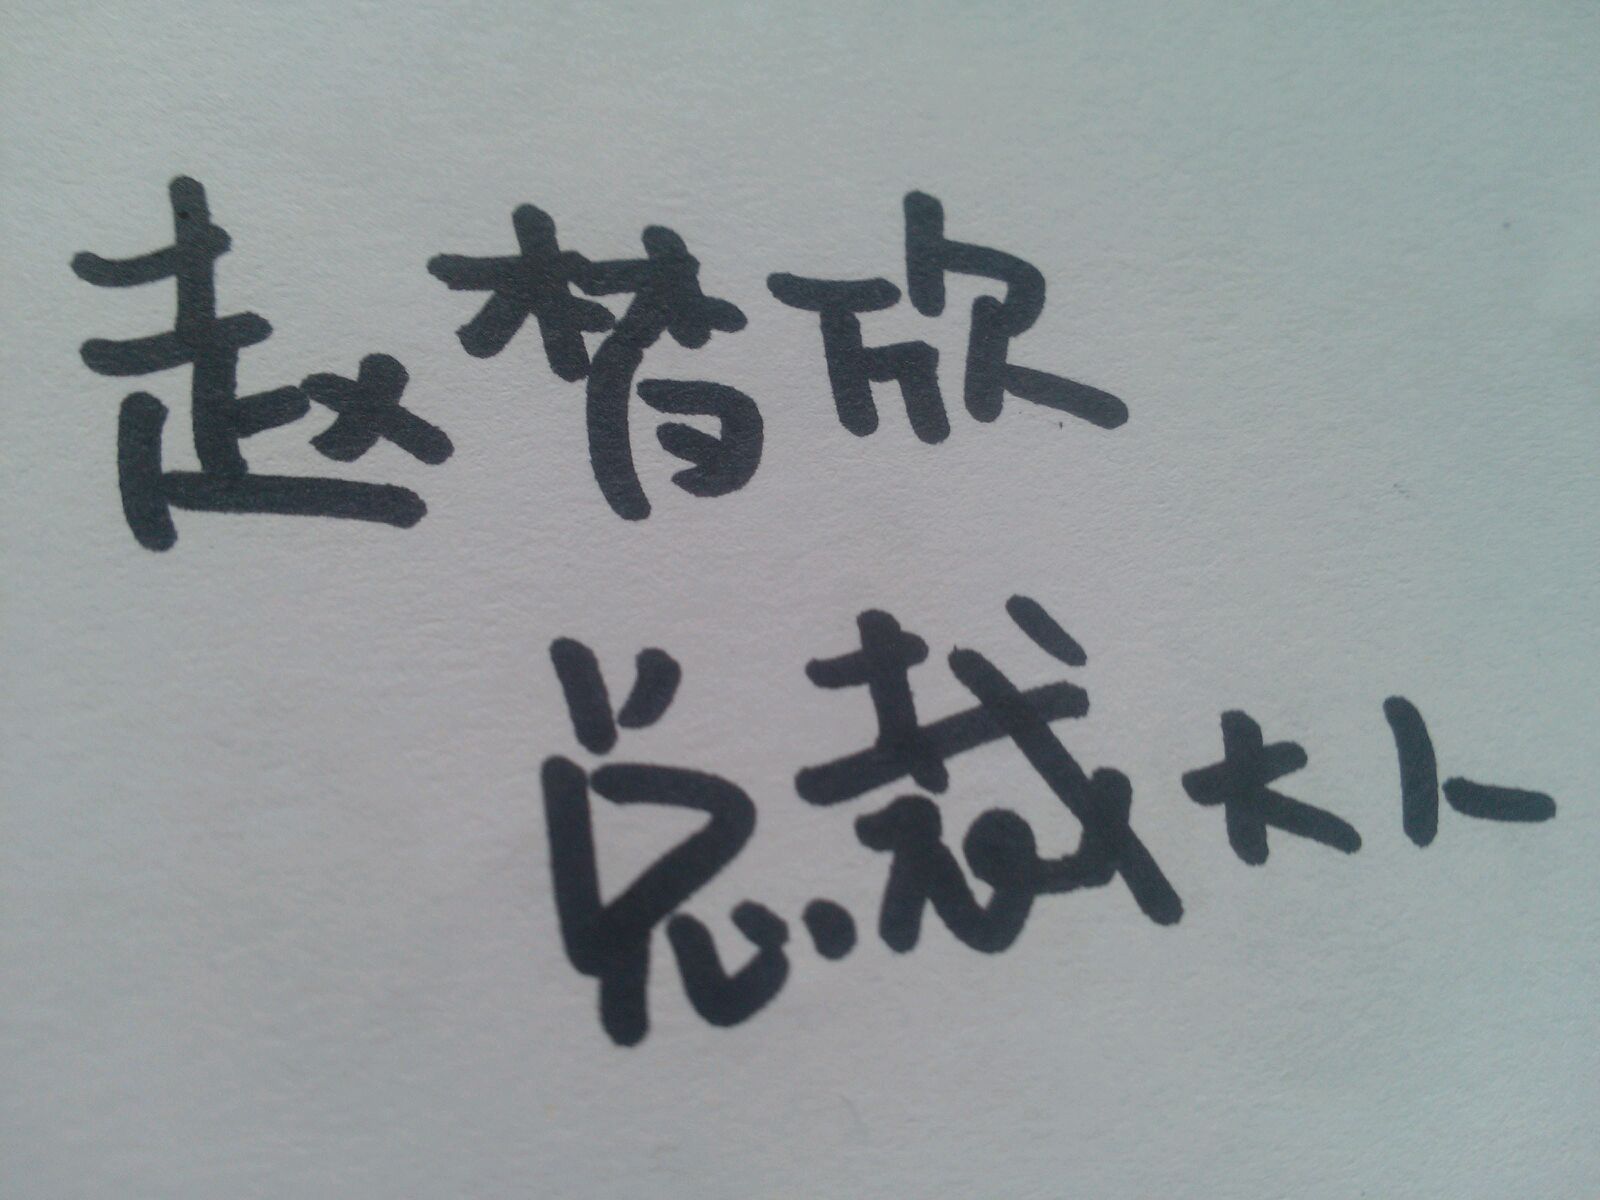 赵梦欣
总裁大人